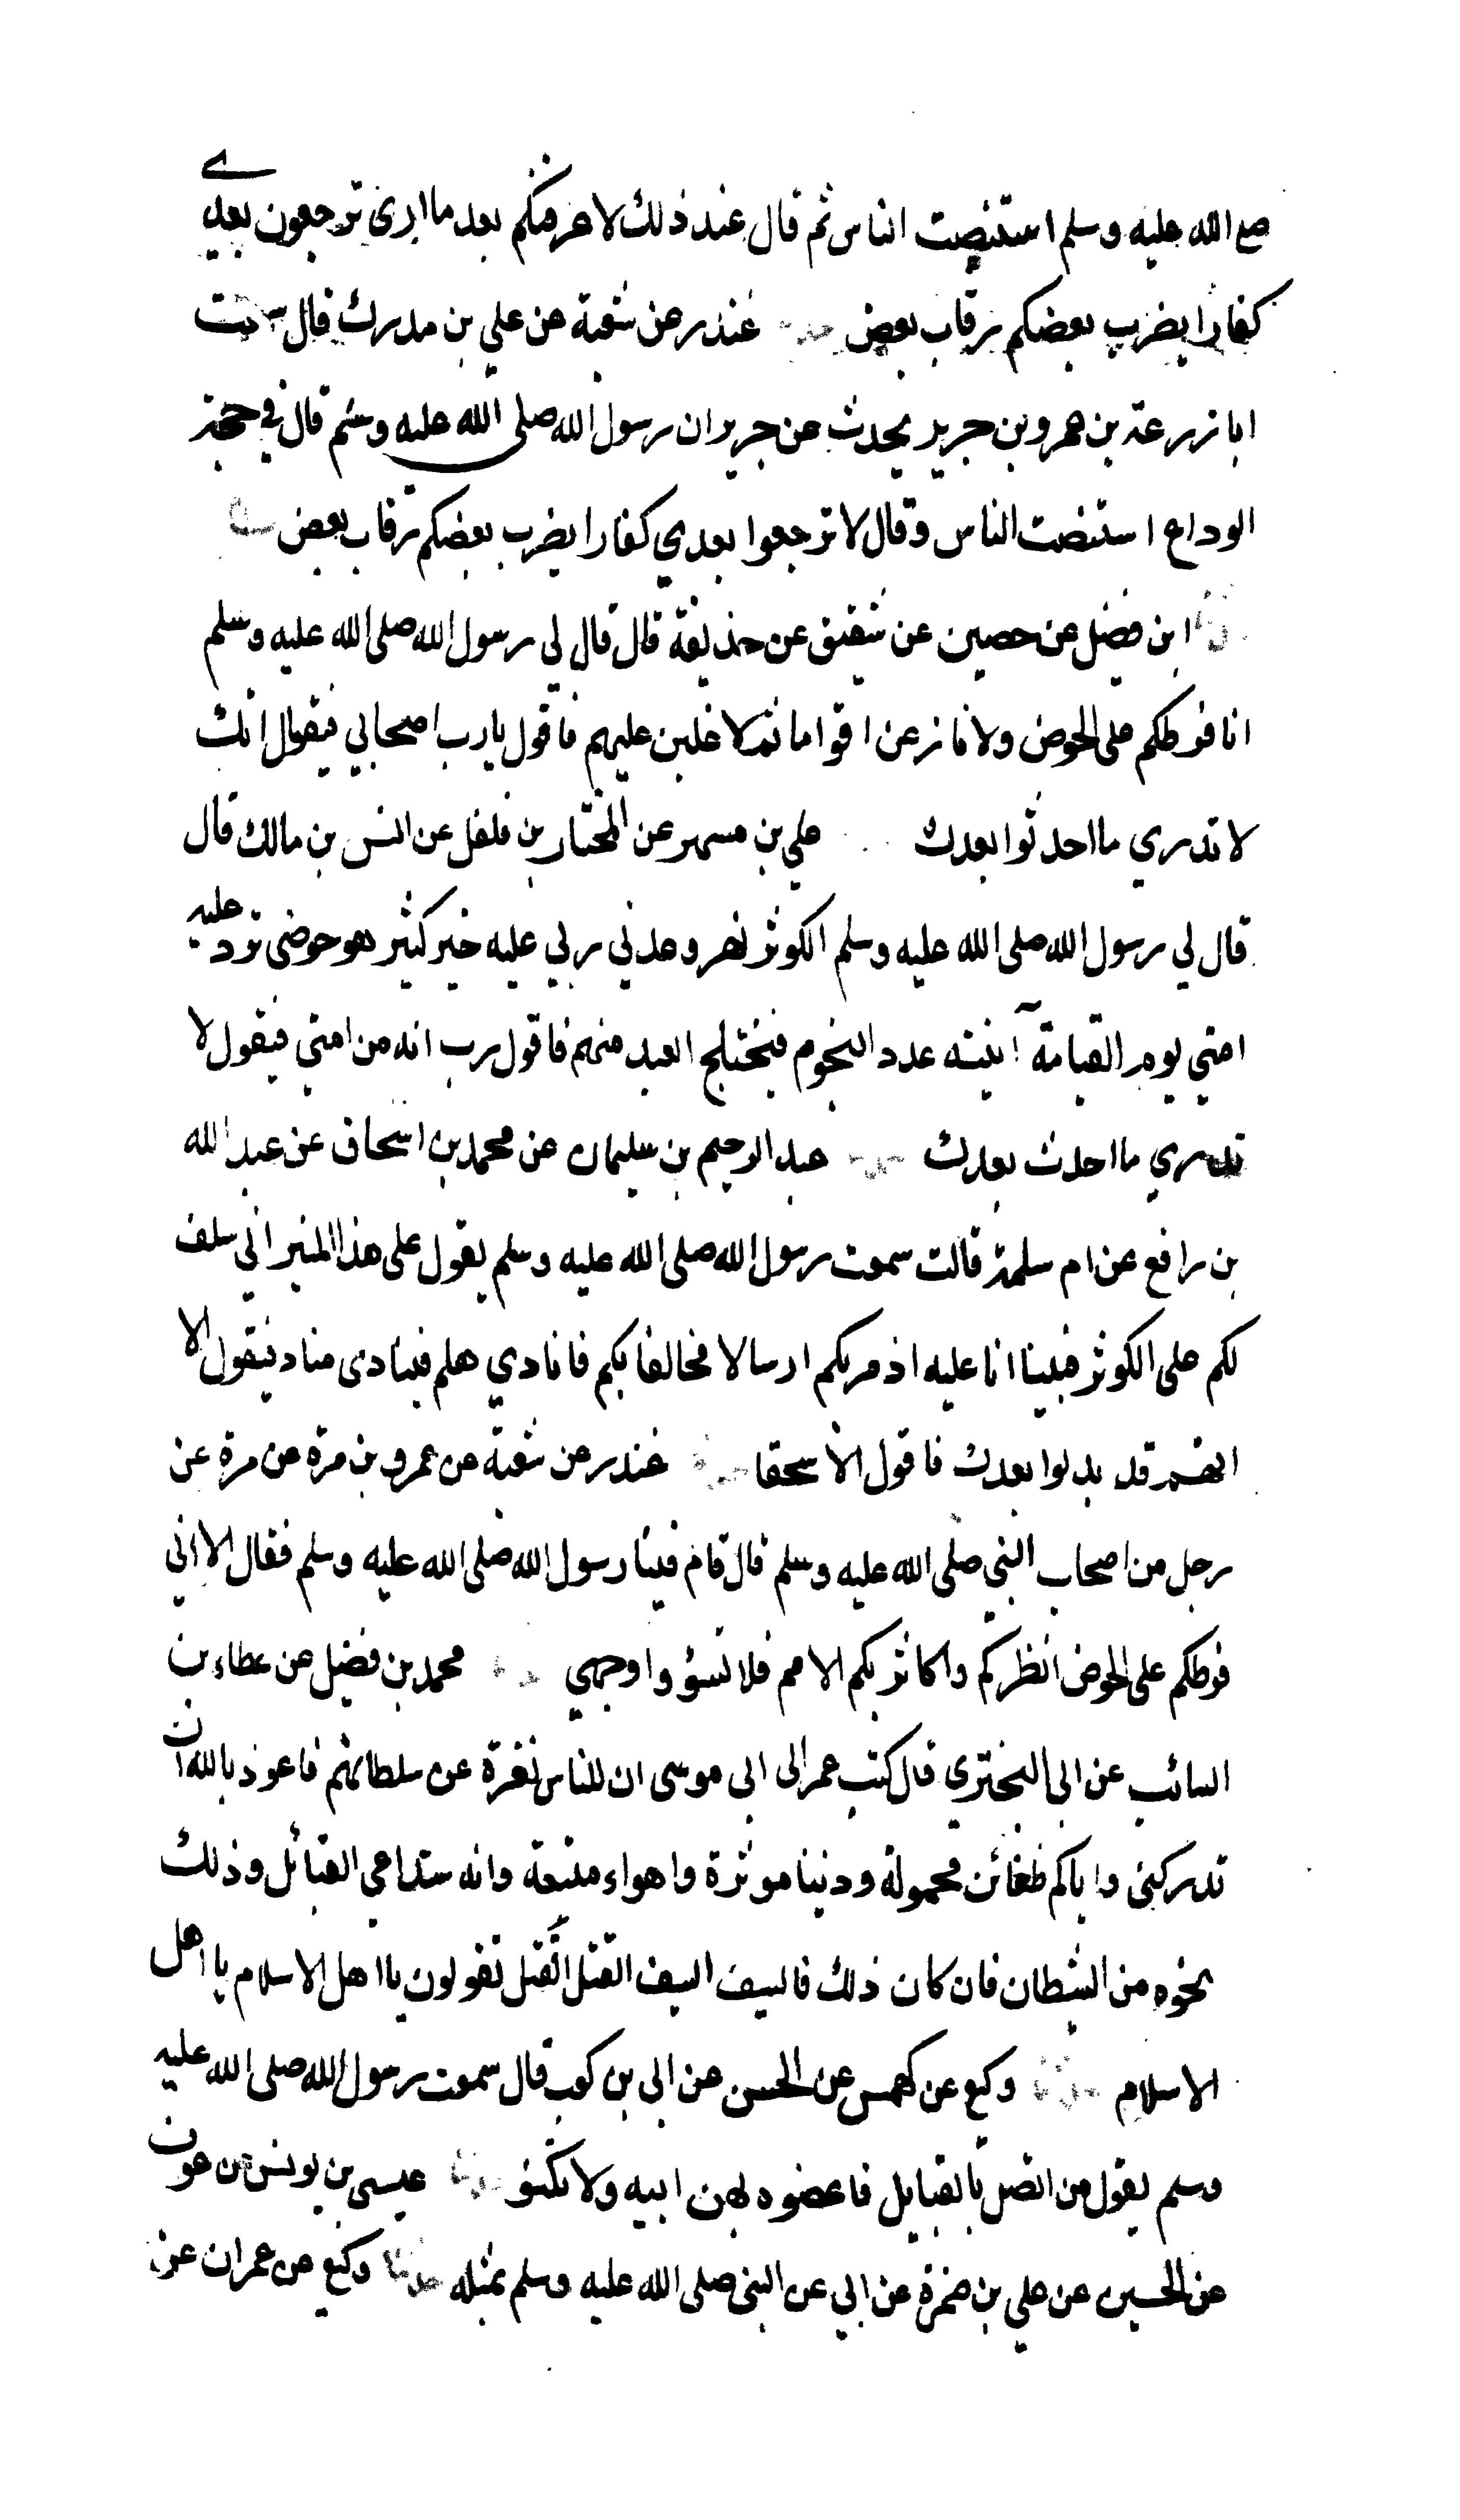 صلع الله عليه وسلم استنصت الناس ثم قال عند ذلك لاعرفنكم بعد ما ارى ترجعون بعدي
كفارا يضرب بعضكم رقاب بعض غندر عن شعبة عن علي بن مدرك قال سمعت
ابا زرعة بن عمرو بن جرير يحدث عن جرير ان رسول الله صلى الله عليه وسلم قال في حجة
الوداع استنصت الناس وقال لا ترجعوا بعدي كفارا يضرب بعضكم رقاب بعض
ابن فضيل عن حصين عن شقيق عن حذيفة قال قال لي رسول الله صلى الله عليه وسلم
انا فرطكم على الحوض ولانازعن اقواما ثم لاغلبن عليهم فاقول يا رب اصحابي فيقال انك
لا تدري ما احدثوا بعدك علي بن مسهر عن المختار بن فلفل عن انس بن مالك قال
قال لي رسول الله صلى الله عليه وسلم الكوثر نهر وعدني ربي عليه خير كثير هو حوضي ترد عليه
امتي يوم القيامة آنيته عدد النجوم فيختلج العبد منهم فاقول رب انه من امتي فيقول لا
تدري ما احدث بعدك عبد الرحيم بن سليمان عن محمد بن اسحاق عن عبد الله
بن رافع عن ام سلمة قالت سمعت رسول الله صلى الله عليه وسلم يقول على هذا المنبر اني سلف
لكم على الكوثر فبينا انا عليه اذ مر بكم ارسالا مخالفا بكم فانادي هلم فينادى مناد فيقول الا
انهم قد بدلوا بعدك فاقول الا سحقا غندر عن شعبة عن عمرو بن مرة عن مرة عن
رجل من اصحاب النبي صلى الله عليه وسلم قال قام فينا رسول الله صلى الله عليه وسلم فقال الا اني
فرطكم على الحوض انظركم واكاثر بكم الامم فلا تسؤدوا وجهي محمد بن فضيل عن عطاء بن
السائب عن ابي البختري قال كتب عمر الى ابى موسى ان للناس نفرة عن سلطانهم فاعوذ بالله ان
تدركنى واياكم ظغائن محمولة ودنيا موثرة واهواء متبعة وانه ستداعي القبائل وذلك
نخوه من الشطان فان كان ذلك فالسيف السيف القتل القتل تقولون يا اهل الاسلام يا اهل
الاسلام وكيع عن كهمس عن الحسن عن ابي بن كعب قال سمعت رسول الله صلى الله عليه
وسلم يقول من اتصل بالقبايل فاعضوه بهن ابيه ولا تكنوا عيسى بن يونس عن عوف
عن الحسين عن علي بن ضمرة عن ابي عن النبى صلى الله عليه وسلم بمثله حدثنا وكيع عن عمران عن